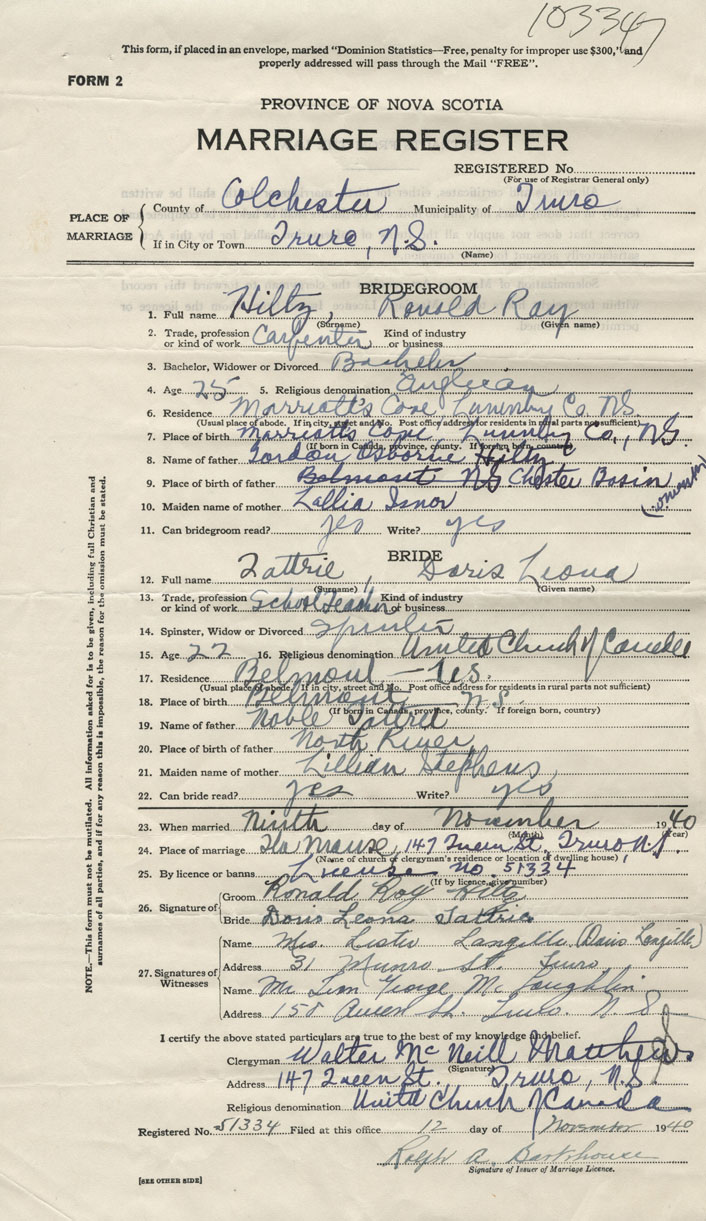 103347
This form, if placed in an envelope, marked "Dominion Statistics—Free, penalty for improper use $300," and
properly addressed will pass through the Mail "FREE".
FORM 2
PROVINCE OF NOVA SCOTIA
MARRIAGE REGISTER
REGISTERED No.
(For use of Registrar General only)
PLACE OF MARRIAGE
County of Colchester Municipality of Truro
If in City or Town Truro, N.S.
(Name)
BRIDEGROOM
1. Full name Hiltz, Ronald Ray
(Surname) (Given name)
2. Trade, profession or kind of work Carpenter Kind of industry or business
3. Bachelor, Widower or Divorced Bachelor
4. Age 25 5. Religious denomination Anglican
6. Residence Marriott's Cove Lunenburg Co. NS
(Usual place of abode. If in city, street and No. Post office address for residents in rural parts not sufficient)
7. Place of birth Marriotts Cove, Co., N.S.
(If born in Canada, province, county. If foreign born, country)
8. Name of father Gordon Osborne Hiltz
9. Place of birth of father Belmont NS Chester Basin
10. Maiden name of mother Lallia
11. Can bridegroom read? yes Write? yes
BRIDE
12. Full name Tattrie, Doris Leona
(Surname) (Given name)
13. Trade, profession or kind of work School Teacher Kind of industry or business
14. Spinster, Widow or Divorced Spinster
15. Age 22 16. Religious denomination United Church of Canada
17. Residence Belmont
(Usual place of abode. If in city, street and No. Post office address for residents in rural parts not sufficient)
18. Place of birth Belmont N.S.
(If born in Canada, province, county. If foreign born, country)
19. Name of father Noble Tattrie
20. Place of birth of father North River
21. Maiden name of mother Lillian Stephens
22. Can bride read? yes Write? yes
23. When married Ninth day of November 1940
(Month) (Year)
24. Place of marriage Manse, 147 Queen St. Truro N.S.
(Name of church or clergyman's residence or location of dwelling house)
25. By licence or banns License No. 51334
(If by licence, give number)
26. Signature of
Groom Ronald Ray Hiltz
Bride Doris Leona Tattrie
27. Signatures of Witnesses
Name Mrs. Lester Langille (Doris Langille)
Address 31 Munro St. Truro
Name Mr. George McLaughlin
Address 158 Queen St. Truro N.S.
I certify the above stated particulars are true to the best of my knowledge and belief.
Clergyman Walter McNeill Matthews
(Signature)
Address 147 Queen St. Truro, N.S.
Religious denomination United Church of Canada
Registered No. 51334 Filed at this office 12 day of November 1940
Ralph A.
Signature of Issuer of Marriage Licence.
[SEE OTHER SIDE]
NOTE.—This form must not be mutilated. All information asked for is to be given, including full Christian and
surnames of all parties, and if for any reason this is impossible, the reason for the omission must be stated.